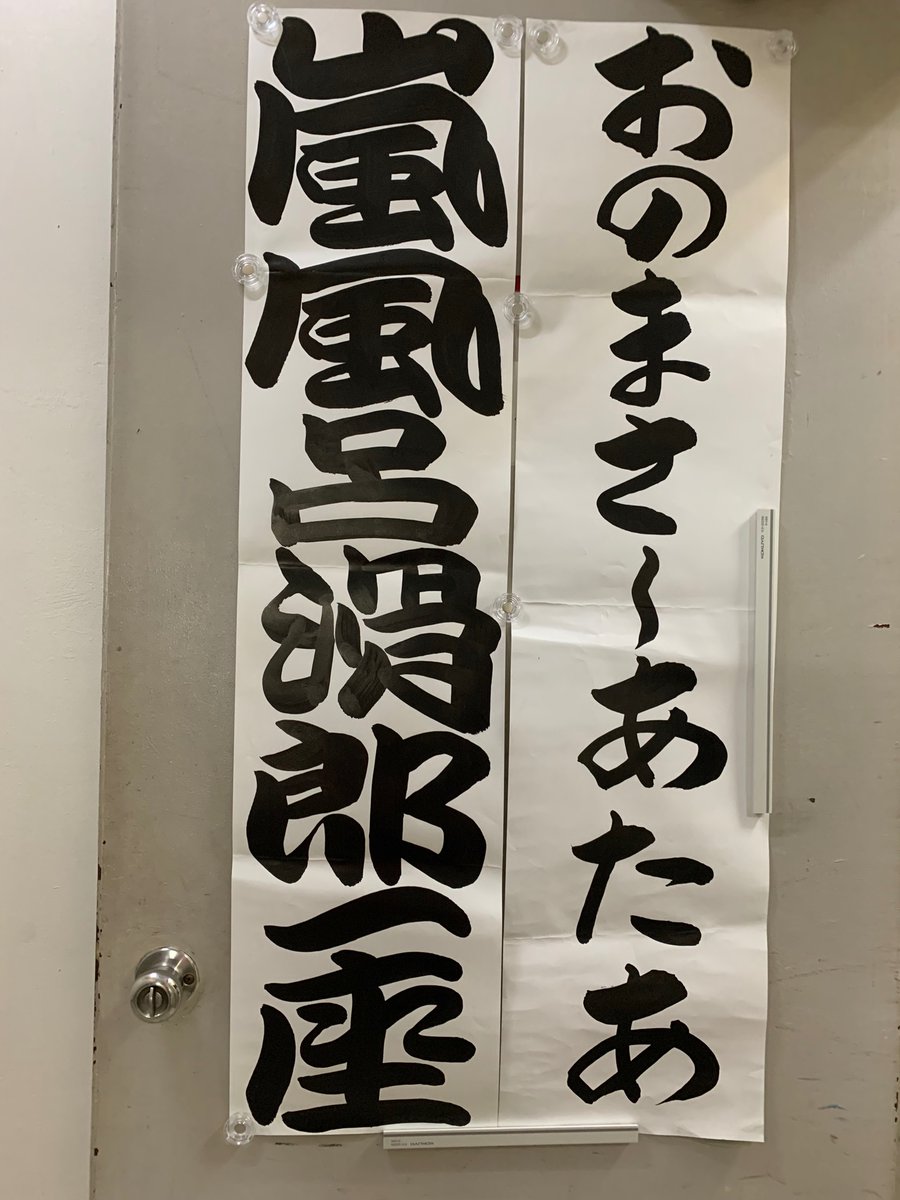 おのまさ～あたあ
嵐風呂滑郎一座